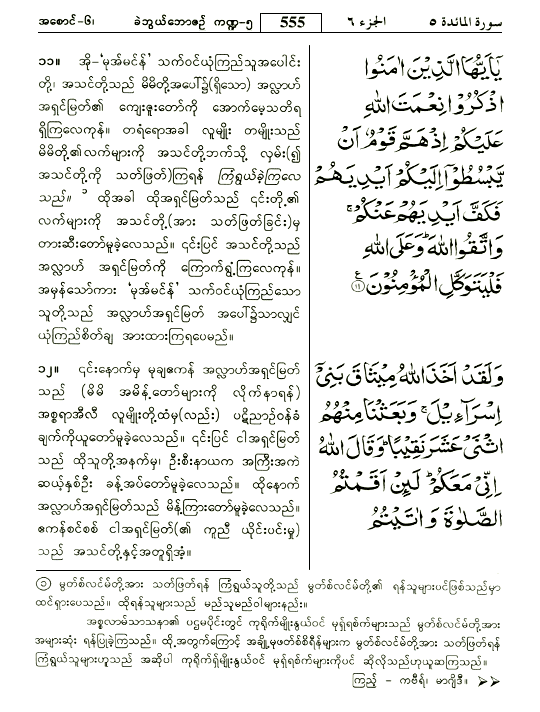 အစောင်-၆၊ ခဲဘွယ်ဘောဇဉ် ကဏ္ဍ-၅ 555 الجزء ٦ سورة المائدة ٥
၁၁။ အို-‘မုအ်မင်န်’ သက်ဝင်ယုံကြည်သူအပေါင်း
တို့၊ အသင်တို့သည် မိမိတို့အပေါ်၌(ရှိသော) အလ္လာဟ်
အရှင်မြတ်၏ ကျေးဇူးတော်ကို အောက်မေ့သတိရ
ရှိကြလေကုန်။ တရံရောအခါ လူမျိုး တမျိုးသည်
မိမိတို့၏လက်များကို အသင်တို့ဘက်သို့ လှမ်း(၍
အသင်တို့ကို သတ်ဖြတ်)ကြရန် ကြံရွယ်ခဲ့ကြလေ
သည်။ ၁ ထိုအခါ ထိုအရှင်မြတ်သည် ၎င်းတို့၏
လက်များကို အသင်တို့(အား သတ်ဖြတ်ခြင်း)မှ
တားဆီးတော်မူခဲ့လေသည်။ ၎င်းပြင် အသင်တို့သည်
အလ္လာဟ် အရှင်မြတ်ကို ကြောက်ရွံ့ကြလေကုန်။
အမှန်သော်ကား ‘မုအ်မင်န်’ သက်ဝင်ယုံကြည်သော
သူတို့သည် အလ္လာဟ်အရှင်မြတ် အပေါ်၌သာလျှင်
ယုံကြည်စိတ်ချ အားထားကြရပေမည်။
يٰۤاَيُّهَا الَّذِيْنَ اٰمَنُوا
اذْكُرُوْا نِعْمَتَ اللّٰهِ
عَلَيْكُمْ اِذْ هَمَّ قَوْمٌ اَنْ
يَّبْسُطُوْۤا اِلَيْكُمْ اَيْدِيَهُمْ
فَكَفَّ اَيْدِيَهُمْ عَنْكُمْ ۚ
وَاتَّقُوا اللّٰهَ ؕ وَعَلَى اللّٰهِ
فَلْيَتَوَكَّلِ الْمُؤْمِنُوْنَ ﴿۱۱﴾ ع
၁၂။ ၎င်းနောက်မှ မုချဧကန် အလ္လာဟ်အရှင်မြတ်
သည် (မိမိ အမိန့်တော်များကို လိုက်နာရန်)
အစ္စရာအီလီ လူမျိုးတို့ထံမှ(လည်း) ပဋိညာဉ်ဝန်ခံ
ချက်ကိုယူတော်မူခဲ့လေသည်။ ၎င်းပြင် ငါအရှင်မြတ်
သည် ထိုသူတို့အနက်မှ၊ ဦးစီးနာယက အကြီးအကဲ
ဆယ့်နှစ်ဦး ခန့်အပ်တော်မူခဲ့လေသည်။ ထို့နောက်
အလ္လာဟ်အရှင်မြတ်သည် မိန့်ကြားတော်မူခဲ့လေသည်။
ဧကန်စင်စစ် ငါအရှင်မြတ်(၏ ကူညီ ယိုင်းပင်းမှု)
သည် အသင်တို့နှင့်အတူရှိအံ့။
وَلَقَدْ اَخَذَ اللّٰهُ مِيْثَاقَ بَنِيْۤ
اِسْرَآءِيْلَ ۚ وَبَعَثْنَا مِنْهُمُ
اثْنَيْ عَشَرَ نَقِيْبًا ؕ وَقَالَ اللّٰهُ
اِنِّيْ مَعَكُمْ ؕ لَئِنْ اَقَمْتُمُ
الصَّلٰوةَ وَاٰتَيْتُمُ
၁ မွတ်စ်လင်မ်တို့အား သတ်ဖြတ်ရန် ကြံရွယ်သူတို့သည် မွတ်စ်လင်မ်တို့၏ ရန်သူများပင်ဖြစ်သည်မှာ
ထင်ရှားပေသည်။ ထိုရန်သူများသည် မည်သူမည်ဝါများနည်း။
အစ္စလာမ်သာသနာ၏ ပဌမပိုင်းတွင် ကုရိုက်မျိုးနွယ်ဝင် မုရှ်ရစ်က်များသည် မွတ်စ်လင်မ်တို့အား
အများဆုံး ရန်ပြုခဲ့ကြသည်။ ထို့အတွက်ကြောင့် အချို့မုဖတ်စ်စိရီန်များက မွတ်စ်လင်မ်တို့အား သတ်ဖြတ်ရန်
ကြံရွယ်သူများဟူသည် အဆိုပါ ကုရိုက်ရှ်မျိုးနွယ်ဝင် မုရှ်ရစ်က်များကိုပင် ဆိုလိုသည်ဟုယူဆကြသည်။
ကြည့် - ကဗီရ်၊ မာဂျိဒီ။ ➤➤